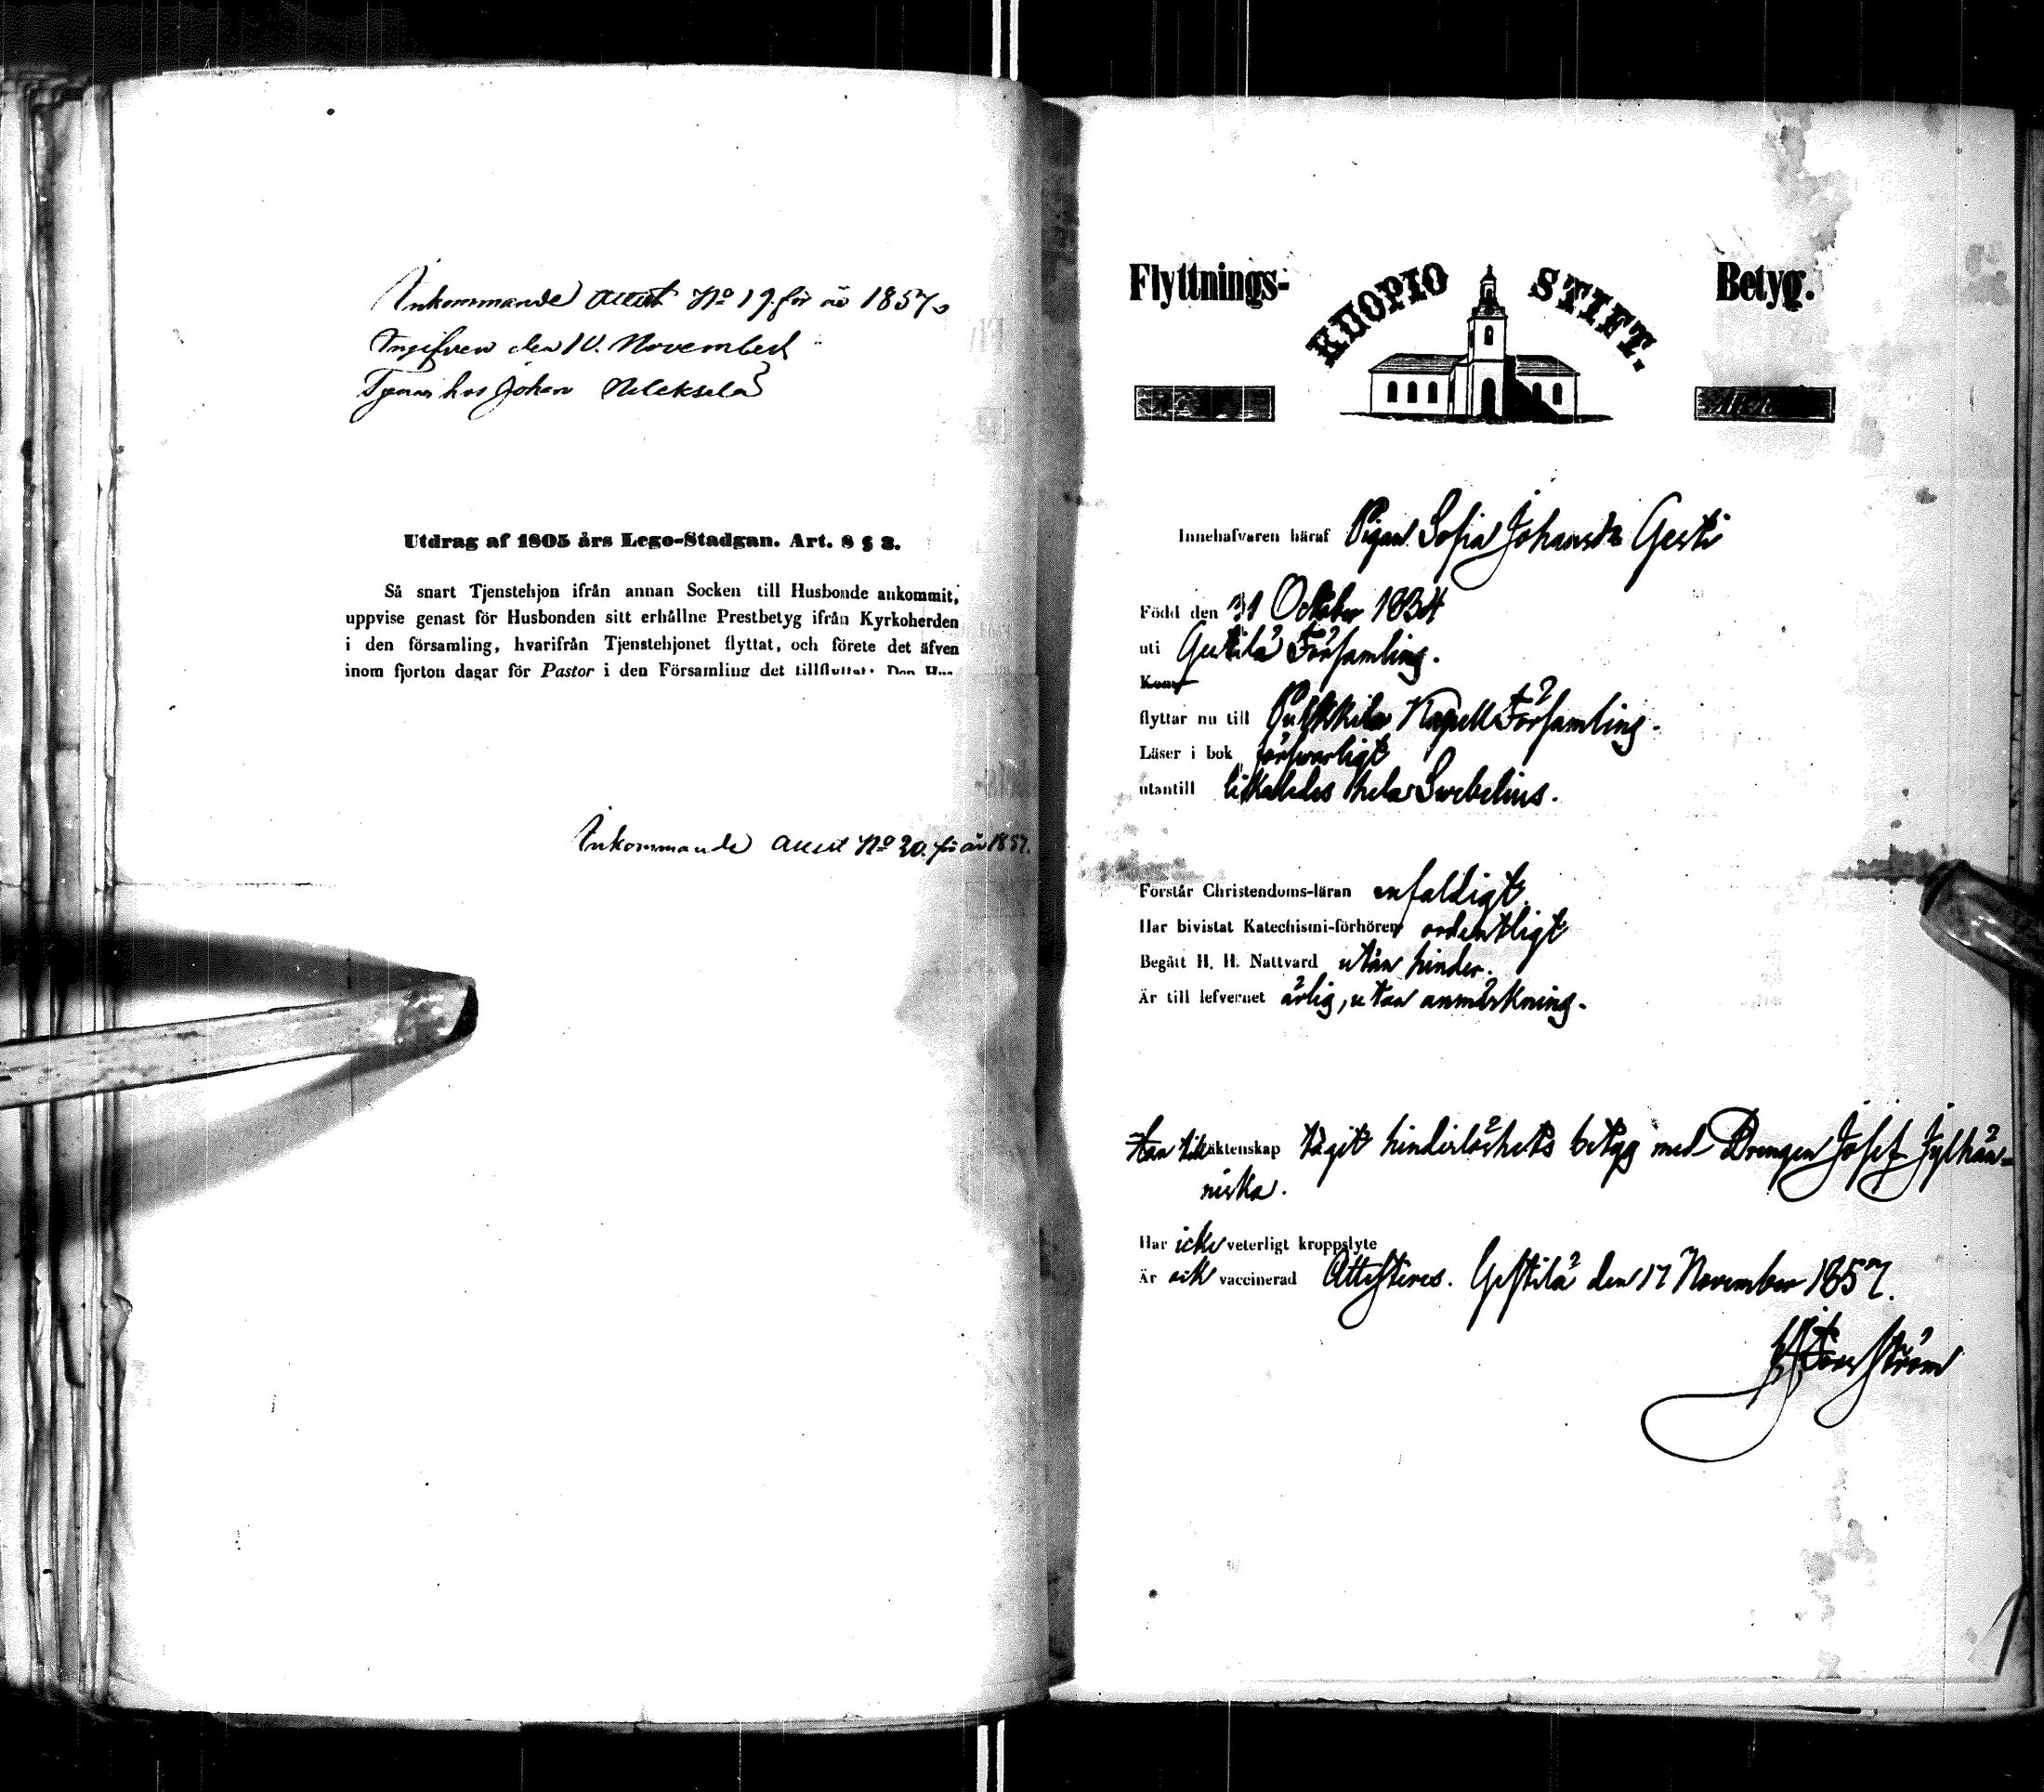 Inkommande Attest No 19. för år 1857.
Ingifven den 10. November
Tjenar hos Johan
Utdrag af 1805 års Lego-Stadgan. Art. 8 § 3.
Så snart Tjenstehjon ifrån annan Socken till Husbonde ankommit,
uppvise genast för Husbonden sitt erhållne Prestbetyg ifrån Kyrkoherden
i den församling, hvarifrån Tjenstehjonet flyttat, och förete det äfven
inom fjorton dagar för Pastor i den Församling det tillflyttat. Den
Inkommande attest No 20. för år 1857.
Flyttnings- KUOPIO STIFT. Betyg.
Innehafvaren häraf Pigan Sofia Johansdr Gesti
Född den 31 October 1834
uti Gestilä Församling.
Kom
flyttar nu till Pulkkila Kapell Församling.
Läser i bok försvarligt
utantill likaledes hela Swebelius.
Förstår Christendoms-läran enfaldigt.
Har bivistat Katechismi-förhören ordentligt
Begått H. H. Nattvard utan hinder.
Är till lefvernet ärlig, utan anmärkning.
Har till äktenskap tagit hinderlöshets betyg med Drengen Josef Jylhän-
niska.
Har icke veterligt kroppslyte
Är ock vaccinerad Attesteras. Gestilä den 17 November 1857.